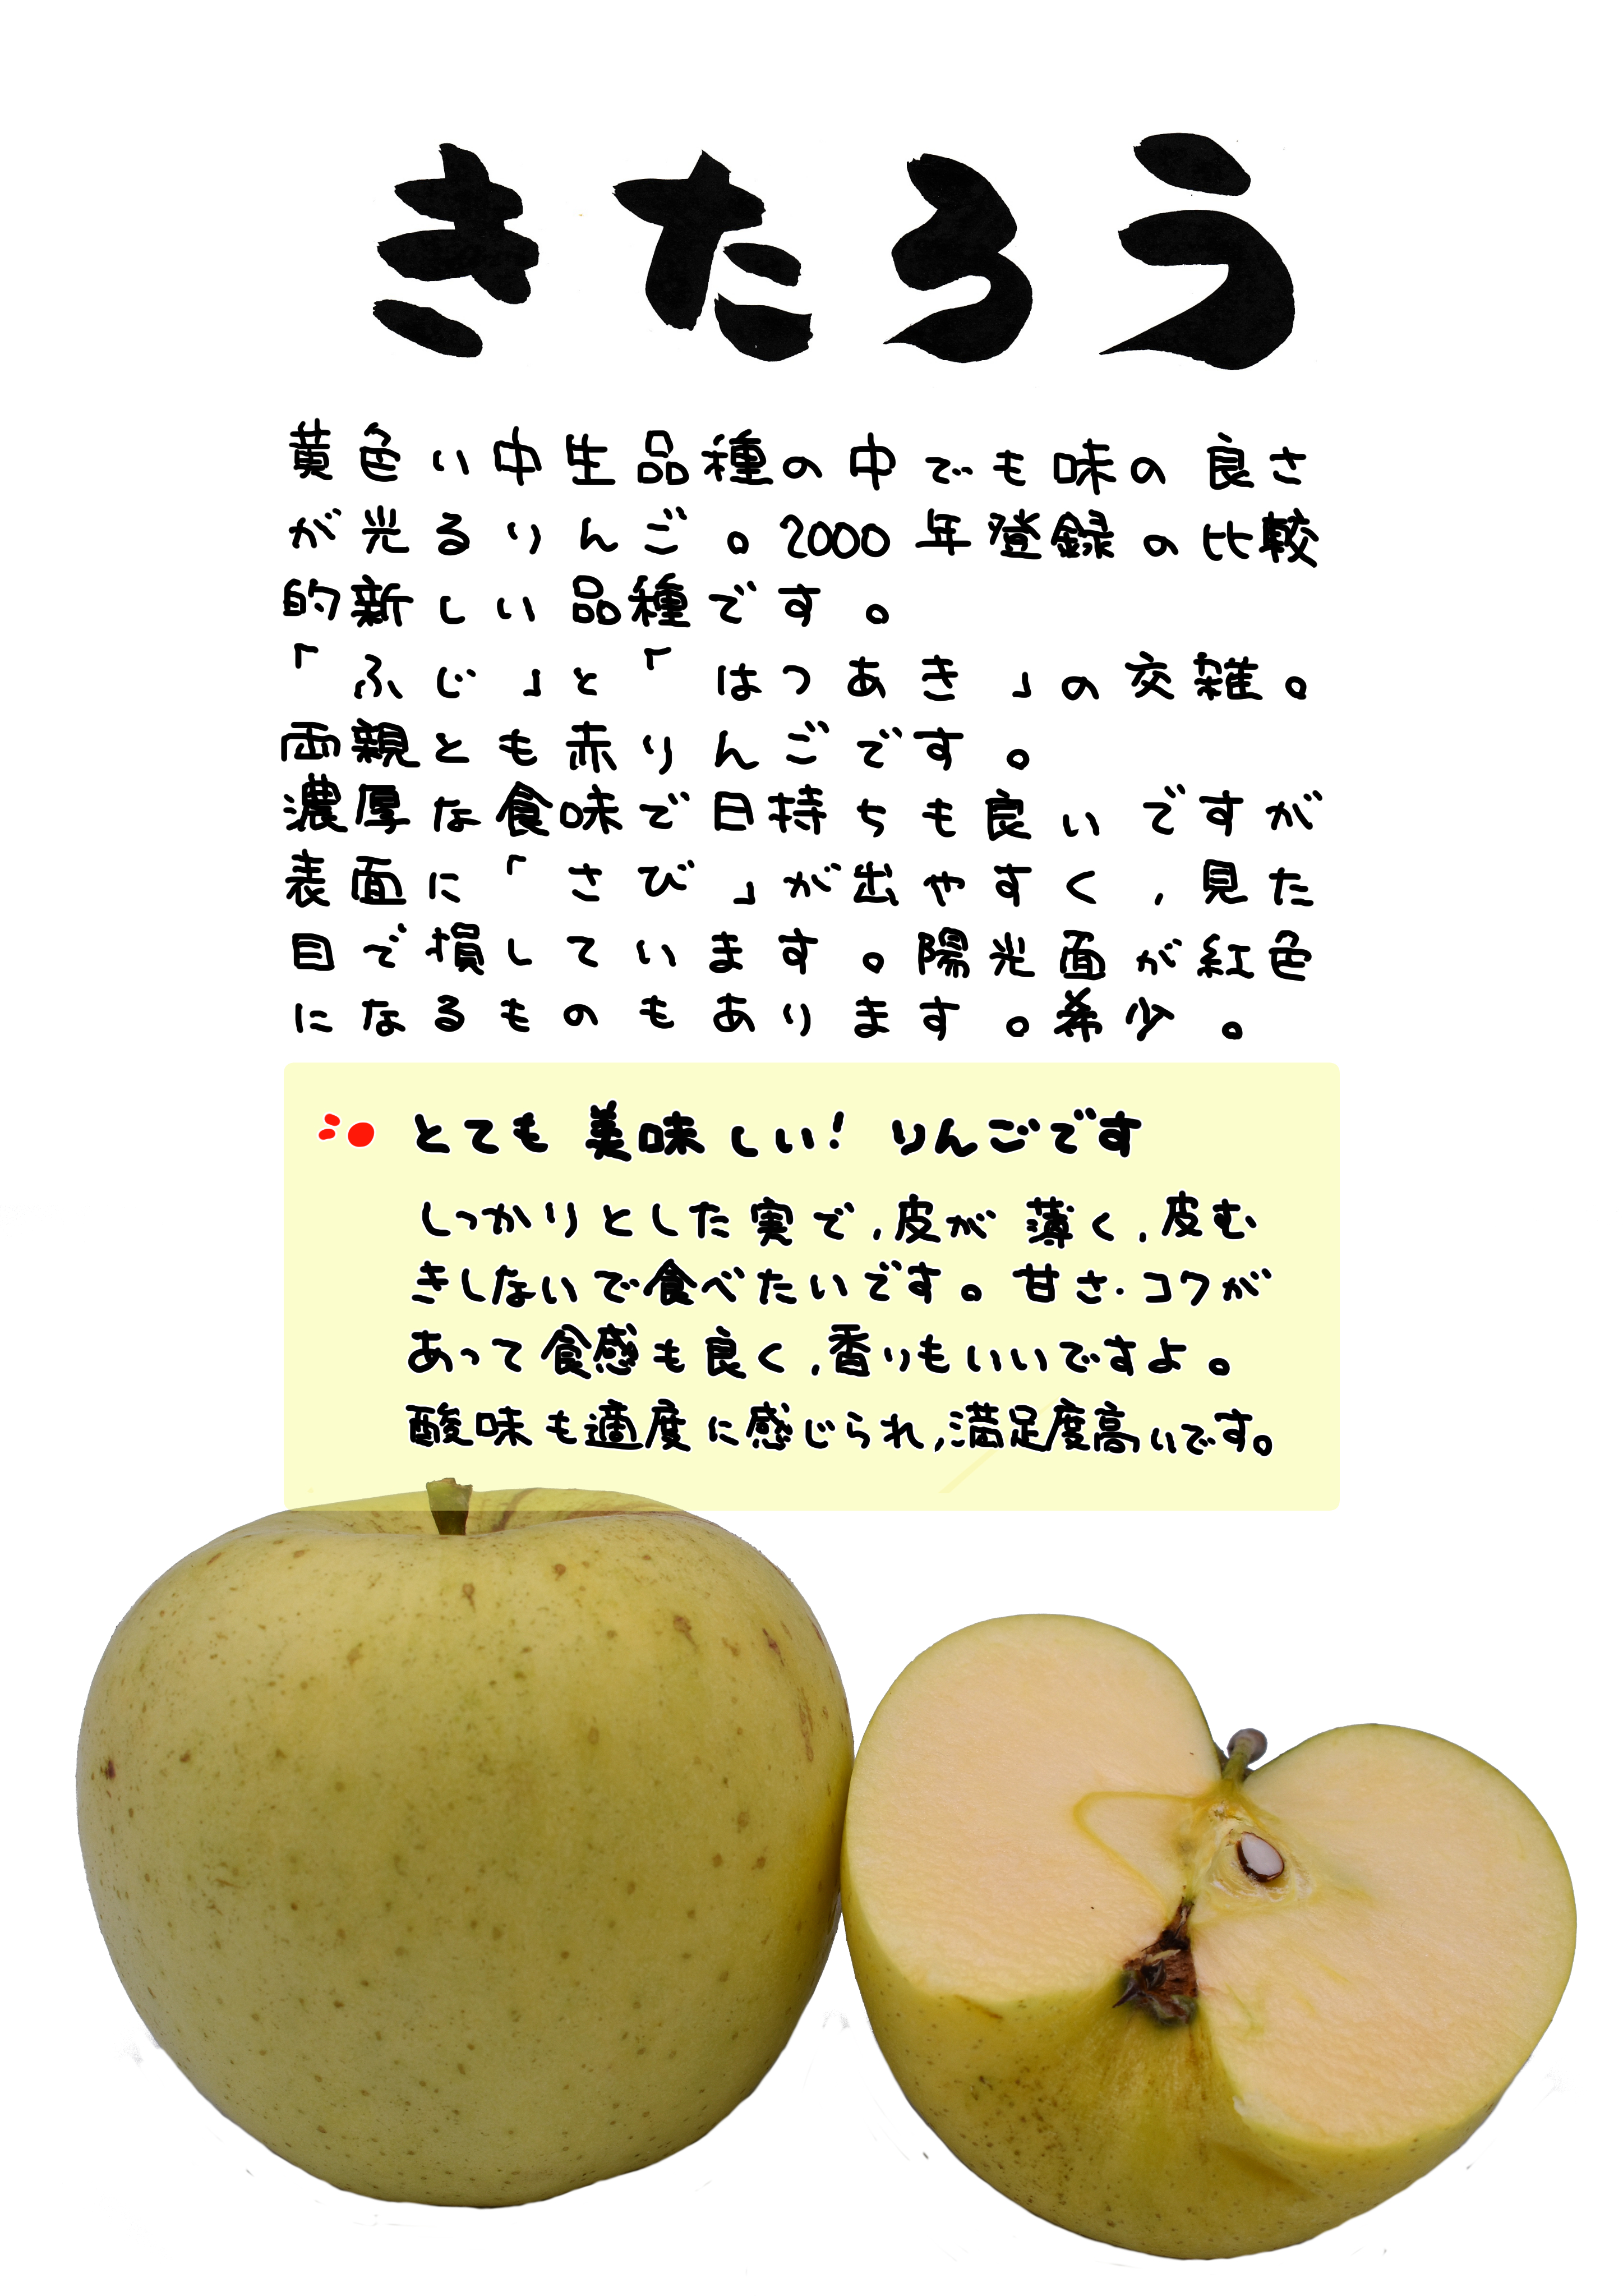 きたろう
黄色い中生品種の中でも味の良さ
が光るりんご。2000年登録の比較
的新しい品種です。
「ふじ」と「はつあき」の交雑。
両親とも赤りんごです。
濃厚な食味で日持ちも良いですが
表面に「さび」が出やすく,見た
目で損しています。陽光面が紅色
になるものもあります。希少。
とても美味しい!りんごです
しっかりとした実で,皮が薄く,皮む
きしないで食べたいです。甘さ・コクが
あって食感も良く,香りもいいですよ。
酸味も適度に感じられ,満足度高いです。